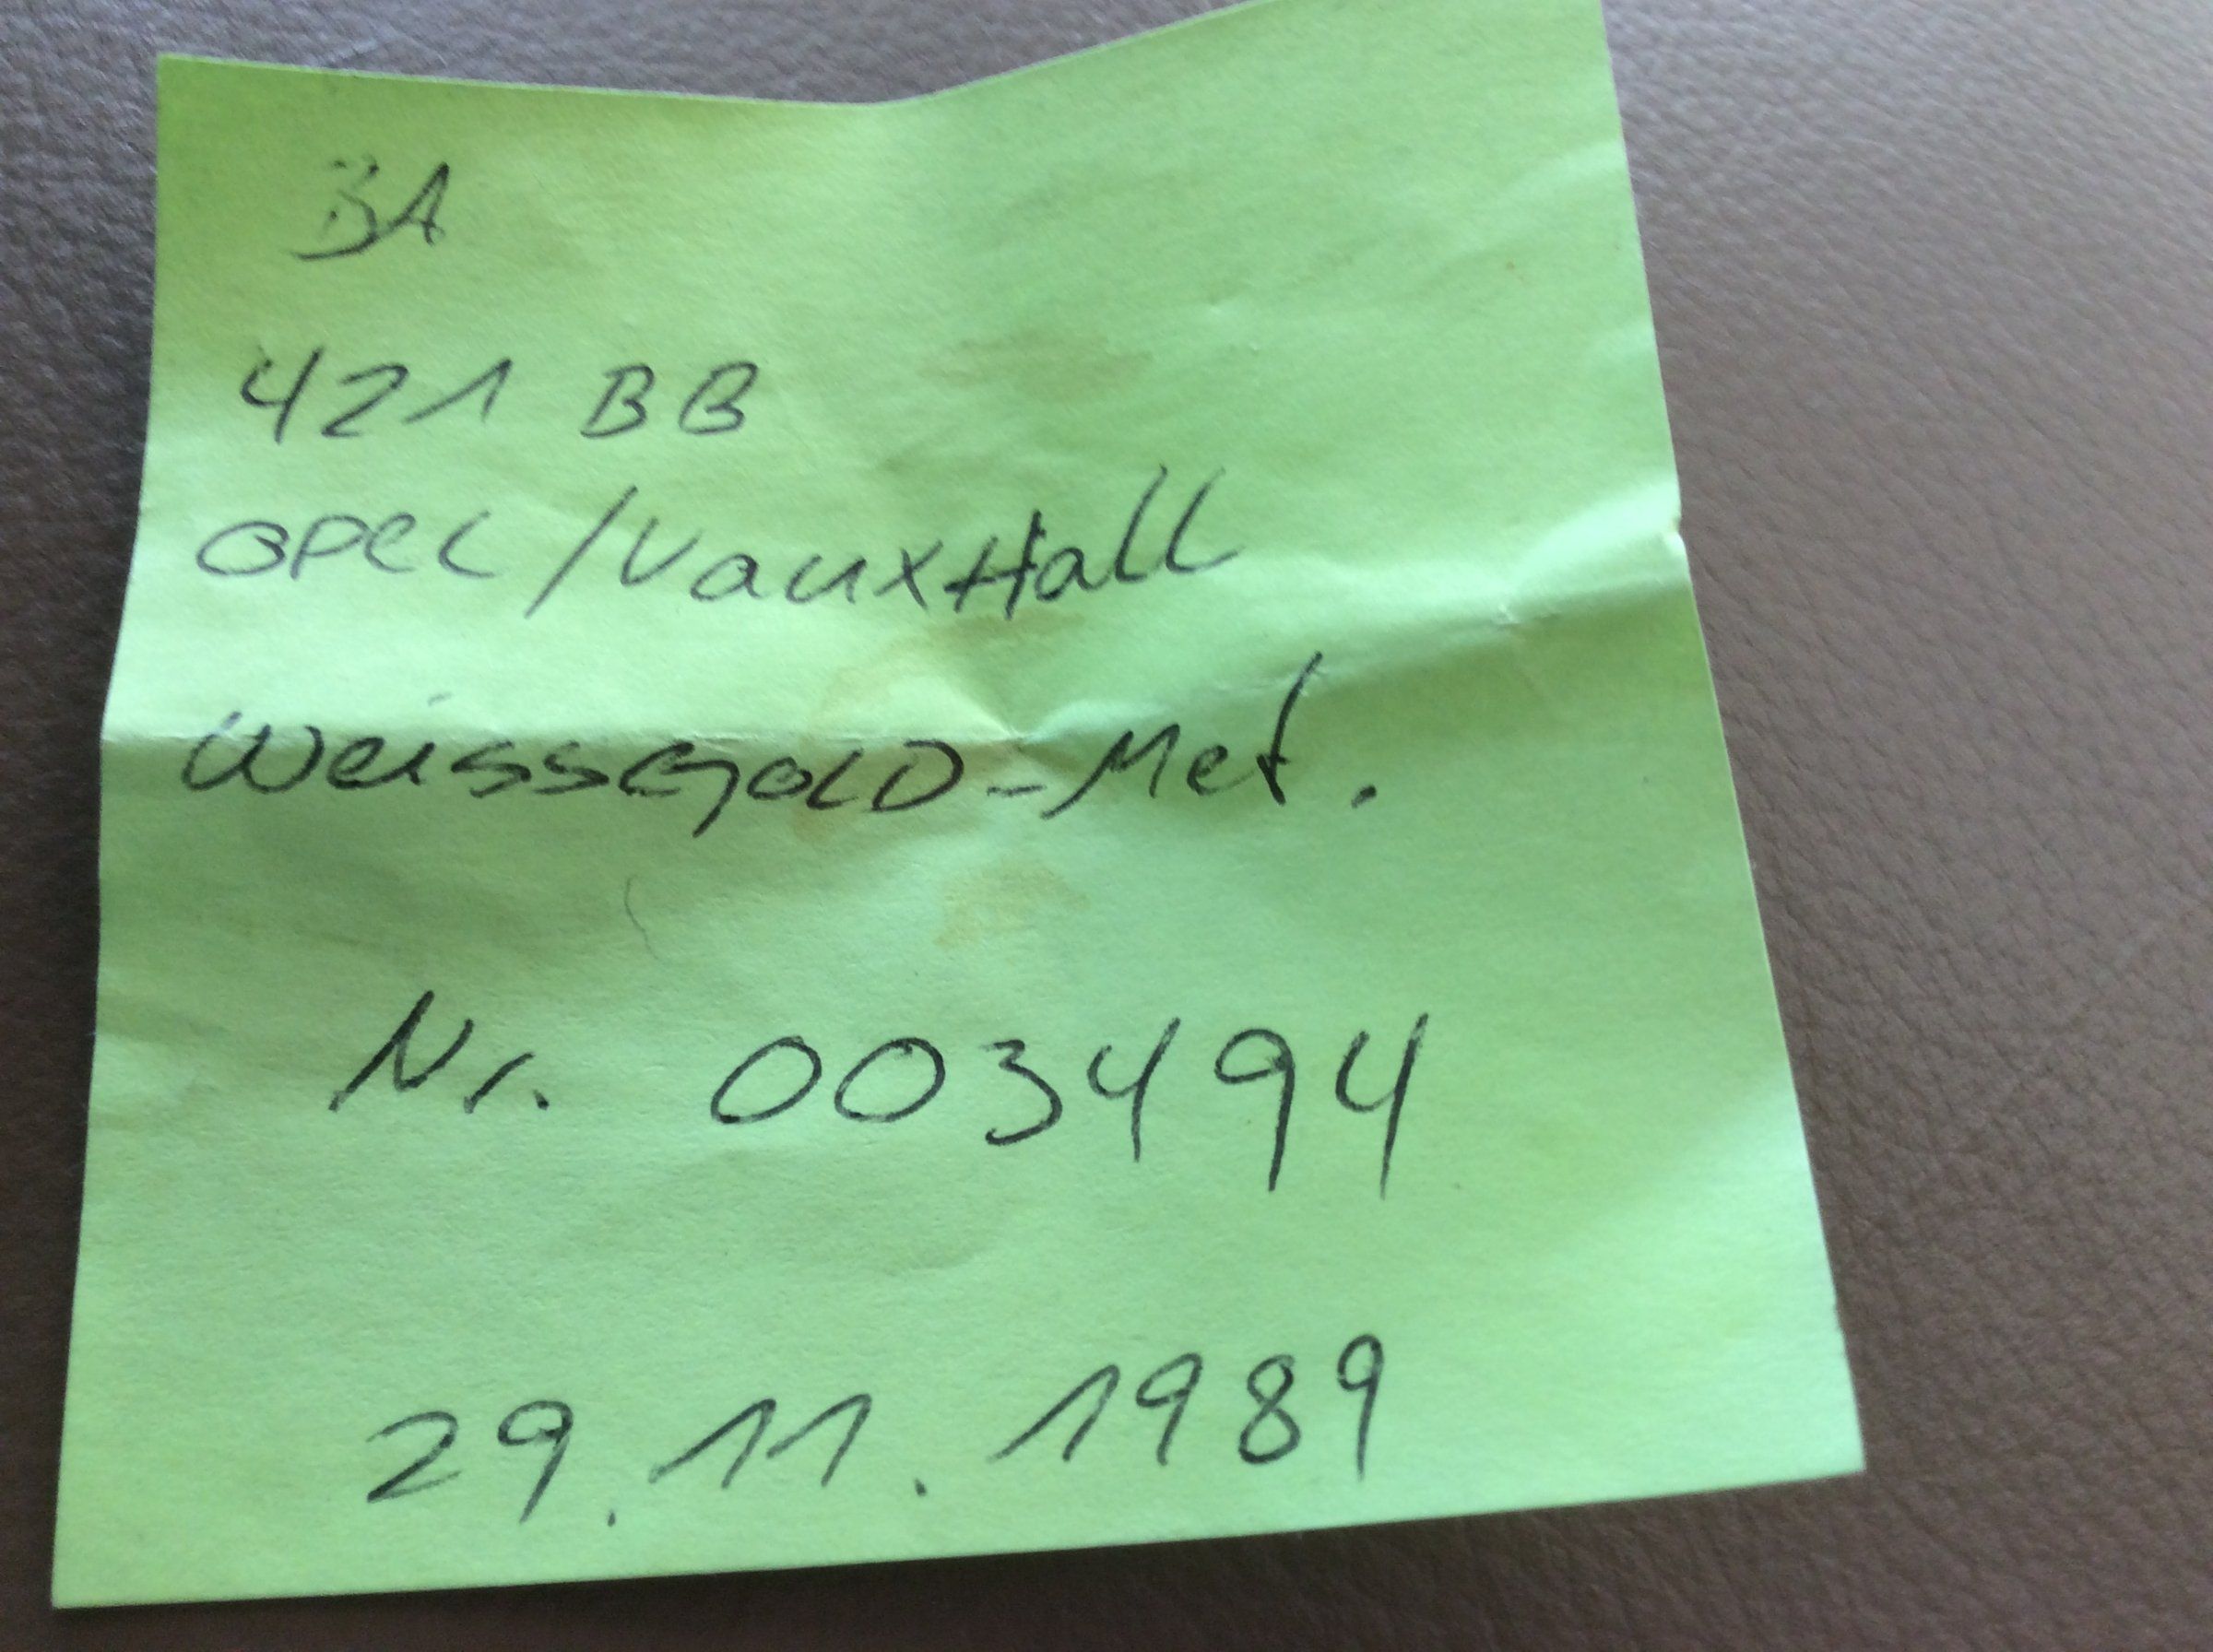 BA
421 BB
OPEL/VauxHall
WeissGOLD-Met.
Nr. 003494
29.11.1989